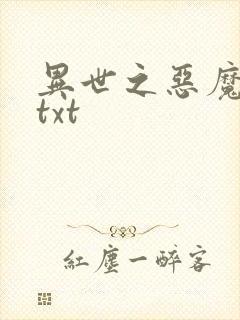 異世之惡魔
txt
紅塵一醉客